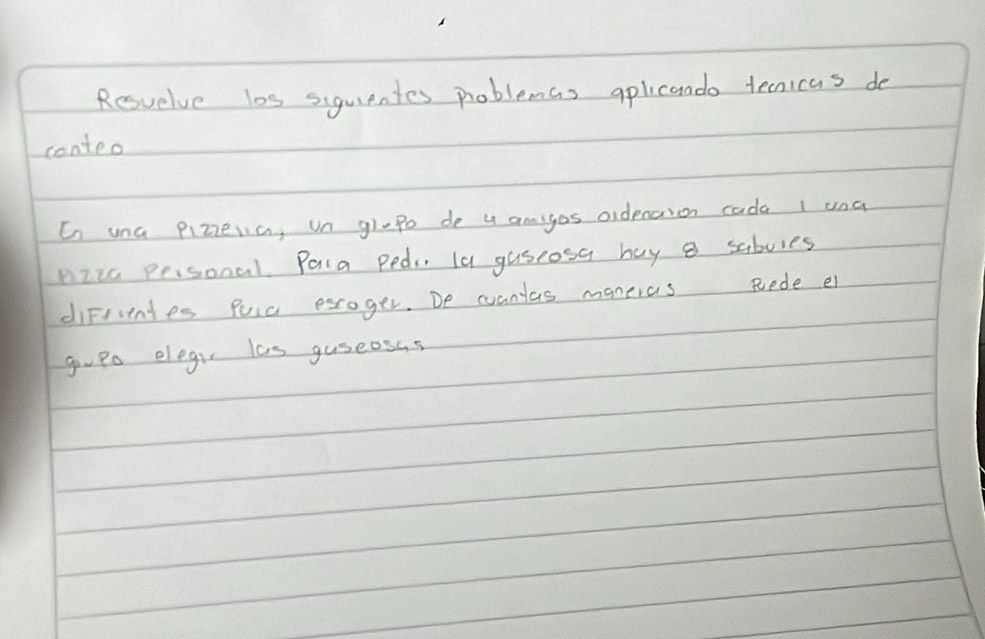 Resuelve los siguientes problemas aplicando tecnicas de
conteo
En una Pizzeria, un grupo de 4 amigos ordenaron cada 1 una
pizza personal. Para pedir la gaseosa hay 8 sabores
diferentes Para escoger. De cuantas maneras Puede el
grupo elegir las gaseosas